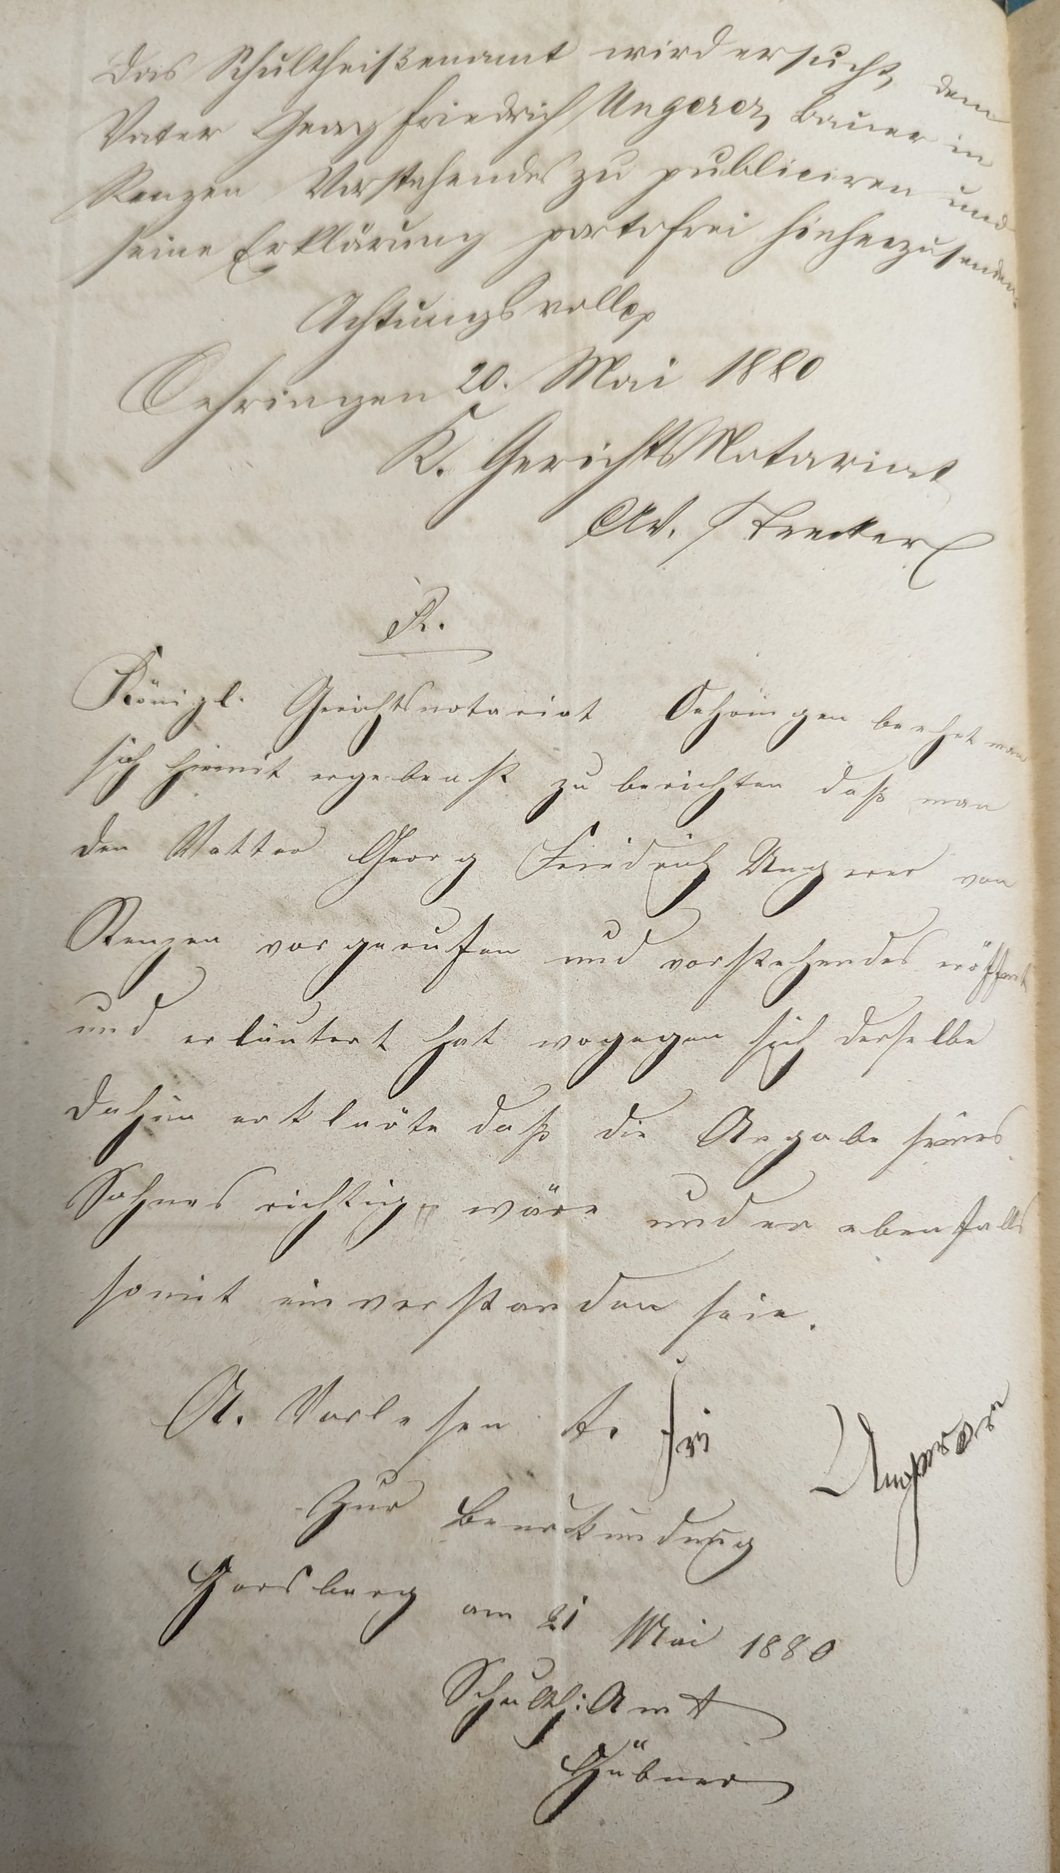 Das Schultheißenamt wird ersucht, dem
Vater Georg Friedrich Ungerer, Bauer in
Renzen Vorstehendes zu publiciren und
seine Erklärung portofrei hieherzusenden.
Achtungsvollst
Oehringen 20. Mai 1880
K. GerichtsNotariat
AV.
R.
Königl. Gerichtsnotariat Oehringen beehrt man
sich hiemit ergebenst zu berichten daß man
den Vatter Georg Friedrich Ungerer von
Renzen vorgerufen und vorstehendes eröffnet
und erläutert hat wogegen sich derselbe
dahin erklärte daß die Angabe seines
Sohnes richtig wäre und er ebenfalls
somit einverstanden seie.
A. Vorlesen t.
Ungerer
Zur Beurkundung
am 21 Mai 1880
Schulth: Amt
Hübner